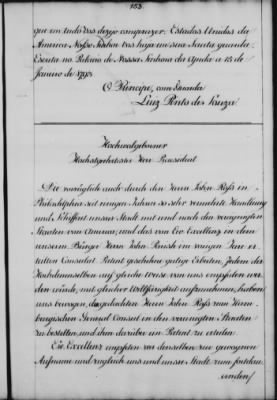 153.
que em tudo vos dezejo comprazer. Estados Unidos da
America Nosso Senhor vos haja em sua Santa guarda.
Escrita no Palacio de Nossa Senhora da Ajuda a 15 de
Janeiro de 1793.
O Principe, com Guarda
Luiz Pinto de Souza
Hochwolgebohrner
Höchstgeehrtester Herr Praesident
Da vorzüglich auch durch den Herrn John Ross in
Philadelphia seit einigen Jahren so sehr vermehrte Handlung
und Schiffart unserer Stadt mit und nach den vereinigten
Staaten von America, und das von Ew. Excellenz in dem
unserm Bürger Herrn John Parish im vorigen Jahr er-
teilten Consulat Patent geschehene gütige Erbieten, Jeden der
Hochdenenselben auf gleiche Weise von uns empfolen wer-
den würde, mit gleicher Willfärigkeit aufzunehmen, haben
uns bewogen, dagedachten Herrn John Ross zum Ham-
burgischen General Consul in den vereinigten Staaten
zu bestellen, und ihm darüber ein Patent zu erteilen.
Ew. Excellenz empfelen wir denselben zur gewogenen
Aufname und zugleich uns und unsere Stadt zum fortdau-
renden